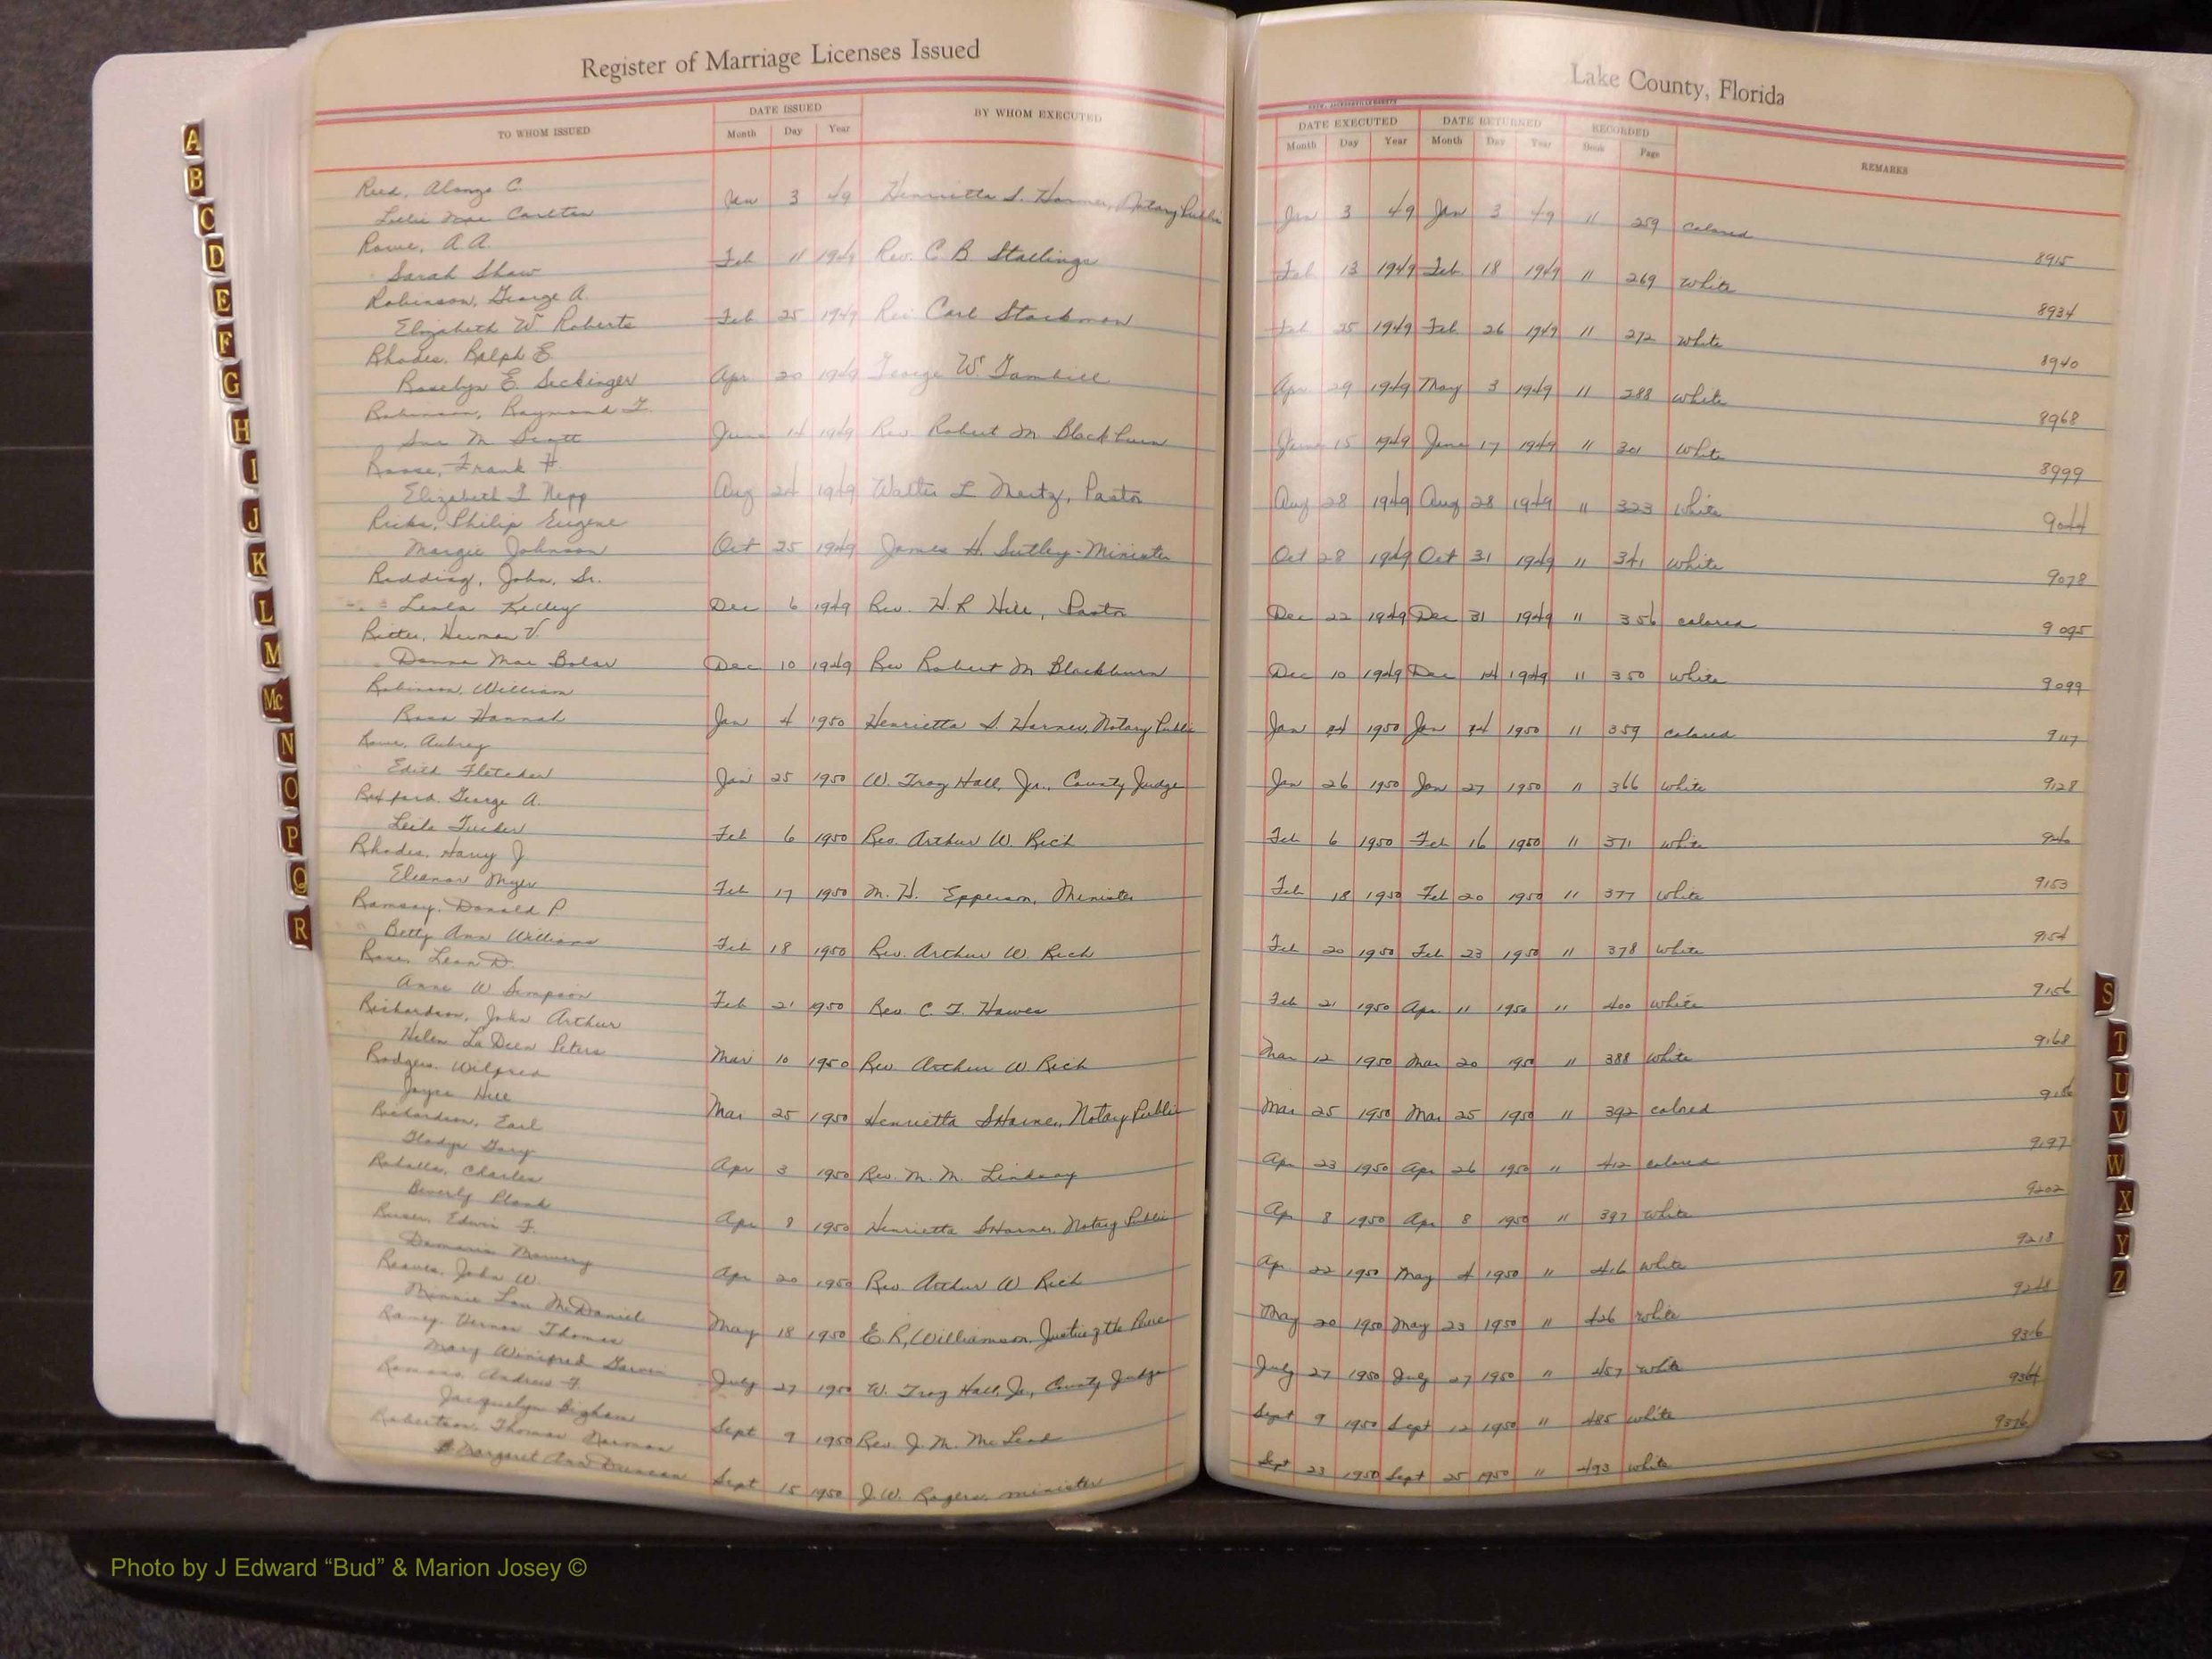 Register of Marriage Licenses Issued
Lake County, Florida
TO WHOM ISSUED DATE ISSUED BY WHOM EXECUTED DATE EXECUTED DATE RETURNED RECORDED REMARKS
Month Day Year Month Day Year Month Day Year Book Page
Reed, Alonzo C.
Lillie Mae Carlton Jan 3 49 Henrietta S. Harner, Notary Public Jan 3 49 Jan 3 49 11 259 colored
8915
Rowe, A A.
Sarah Shaw Feb 11 1949 Rev. C B Stallings Feb 13 1949 Feb 18 1949 11 269 white
8934
Robinson, George A.
Elizabeth W. Roberts Feb 25 1949 Rev Carl Stackman Feb 25 1949 Feb 26 1949 11 272 white
8940
Rhodes, Ralph E.
Roselyn E. Seckinger Apr 20 1949 George W. Gambill Apr 29 1949 May 3 1949 11 288 white
8968
Robinson, Raymond F.
Sue M Scott June 14 1949 Rev Robert M. Blackburn June 15 1949 June 17 1949 11 301 white
8999
Roose, Frank H.
Elizabeth I Nepp Aug 24 1949 Walter L Mertz, Pastor Aug 28 1949 Aug 28 1949 11 323 white
9044
Ricks, Philip Eugene
Margie Johnson Oct 25 1949 James H. Sutley-Minister Oct 28 1949 Oct 31 1949 11 341 white
9078
Redding, John, Sr.
Leola Kelley Dec 6 1949 Rev. H. R Hill, Pastor Dec 22 1949 Dec 31 1949 11 356 colored
9095
Ritter, Herman V.
Donna Mae Bolar Dec 10 1949 Rev Robert M Blackburn Dec 10 1949 Dec 14 1949 11 350 white
9099
Robinson, William
Rosa Hannah Jan 4 1950 Henrietta S. Harner, Notary Public Jan 4 1950 Jan 4 1950 11 359 colored
9117
Rowe, Aubrey
Edith Fletcher Jan 25 1950 W. Troy Hall, Jr., County Judge Jan 26 1950 Jan 27 1950 11 366 white
9128
Rexford, George A.
Leila Tucker Feb 6 1950 Rev. Arthur W. Rich Feb 6 1950 Feb 16 1950 11 371 white
Rhodes, Harry J.
Eleanor Myer Feb 17 1950 M. H. Epperson, Minister Feb 18 1950 Feb 20 1950 11 377 white
9153
Ramsay, Donald P
Betty Ann Williams Feb 18 1950 Rev. Arthur W. Rich Feb 20 1950 Feb 23 1950 11 378 white
9154
Leon D.
Anne W Simpson Feb 21 1950 Rev. C. F. Hawes Feb 21 1950 Apr 11 1950 11 400 white
9156
Richardson, John Arthur
Helen LaDeen Peters Mar 10 1950 Rev. Arthur W Rich Mar 12 1950 Mar 20 1950 11 388 white
9168
Rodgers, Wilfred
Joyce Hill Mar 25 1950 Henrietta S Harner, Notary Public Mar 25 1950 Mar 25 1950 11 392 colored
Richardson, Earl
Gladys Gary Apr 3 1950 Rev. M. M. Lindsay Apr 23 1950 Apr 26 1950 11 412 colored
9197
Charles
Beverly Plank Apr 8 1950 Henrietta S Harner, Notary Public Apr 8 1950 Apr 8 1950 11 397 white
9202
Edwin F.
Damaris Mowery Apr 20 1950 Rev Arthur W Rich Apr 22 1950 May 4 1950 11 416 white
9218
Reaves, John W.
Minnie Lou McDaniel May 18 1950 E. R. Williamson, Justice of the Peace May 20 1950 May 23 1950 11 426 white
9248
Ramey, Vernon Thomas
Mary Winifred Garvin July 27 1950 W. Troy Hall, Jr., County Judge July 27 1950 July 27 1950 11 457 white
9316
Romano, Andrew F.
Jacquelyn Bigham Sept 9 1950 Rev. J. M. McLeod Sept 9 1950 Sept 12 1950 11 485 white
9364
Robertson, Thomas Norman
Margaret Ann Duncan Sept 15 1950 J. W. Rogers, minister Sept 23 1950 Sept 25 1950 11 493 white
9376
A
B
C
D
E
F
G
H
I
J
K
L
M
Mc
N
O
P
Q
R
S
T
U
V
W
X
Y
Z
Photo by J Edward “Bud” & Marion Josey ©